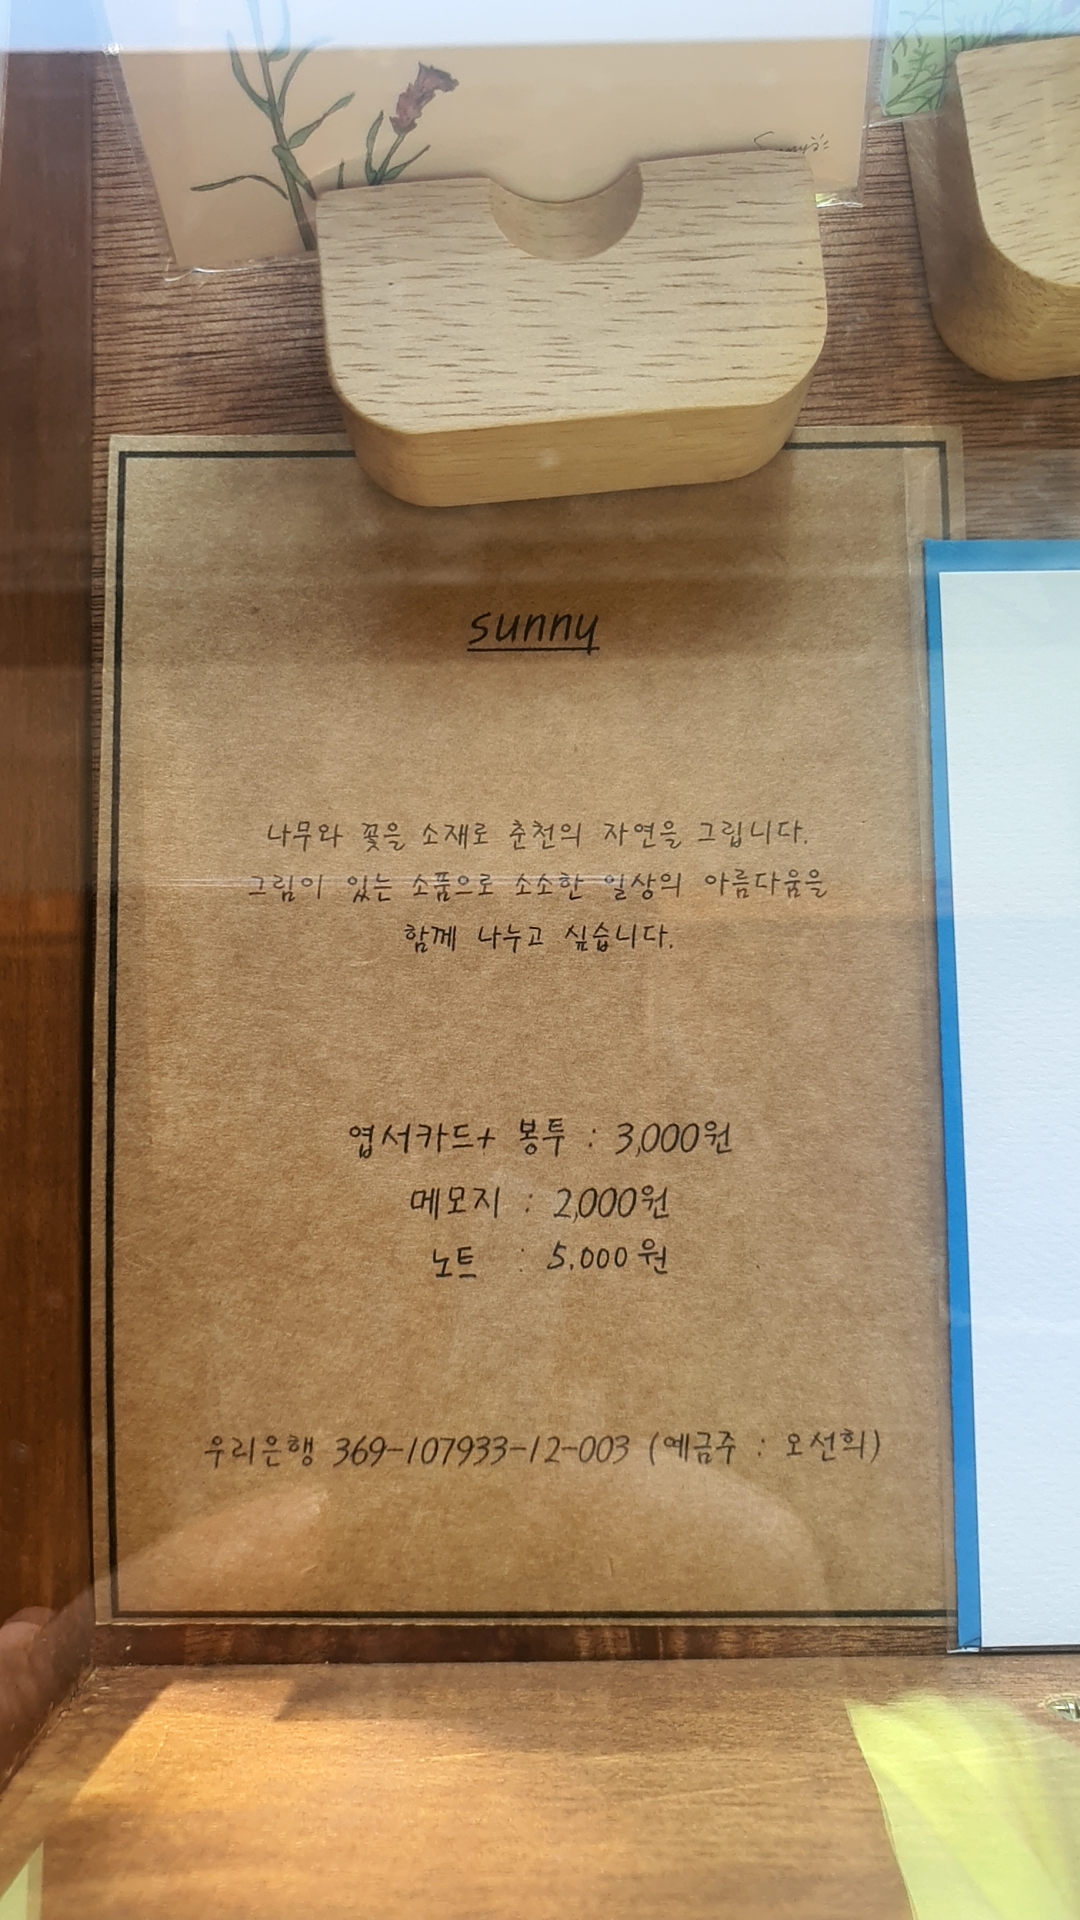 sunny
나무와 꽃을 소재로 춘천의 자연을 그립니다.
그림이 있는 소품으로 소소한 일상의 아름다움을
함께 나누고 싶습니다.
엽서카드+ 봉투 : 3,000원
메모지 : 2,000원
노트 : 5.000원
우리은행 369-107933-12-003 (예금주 : 오선희)